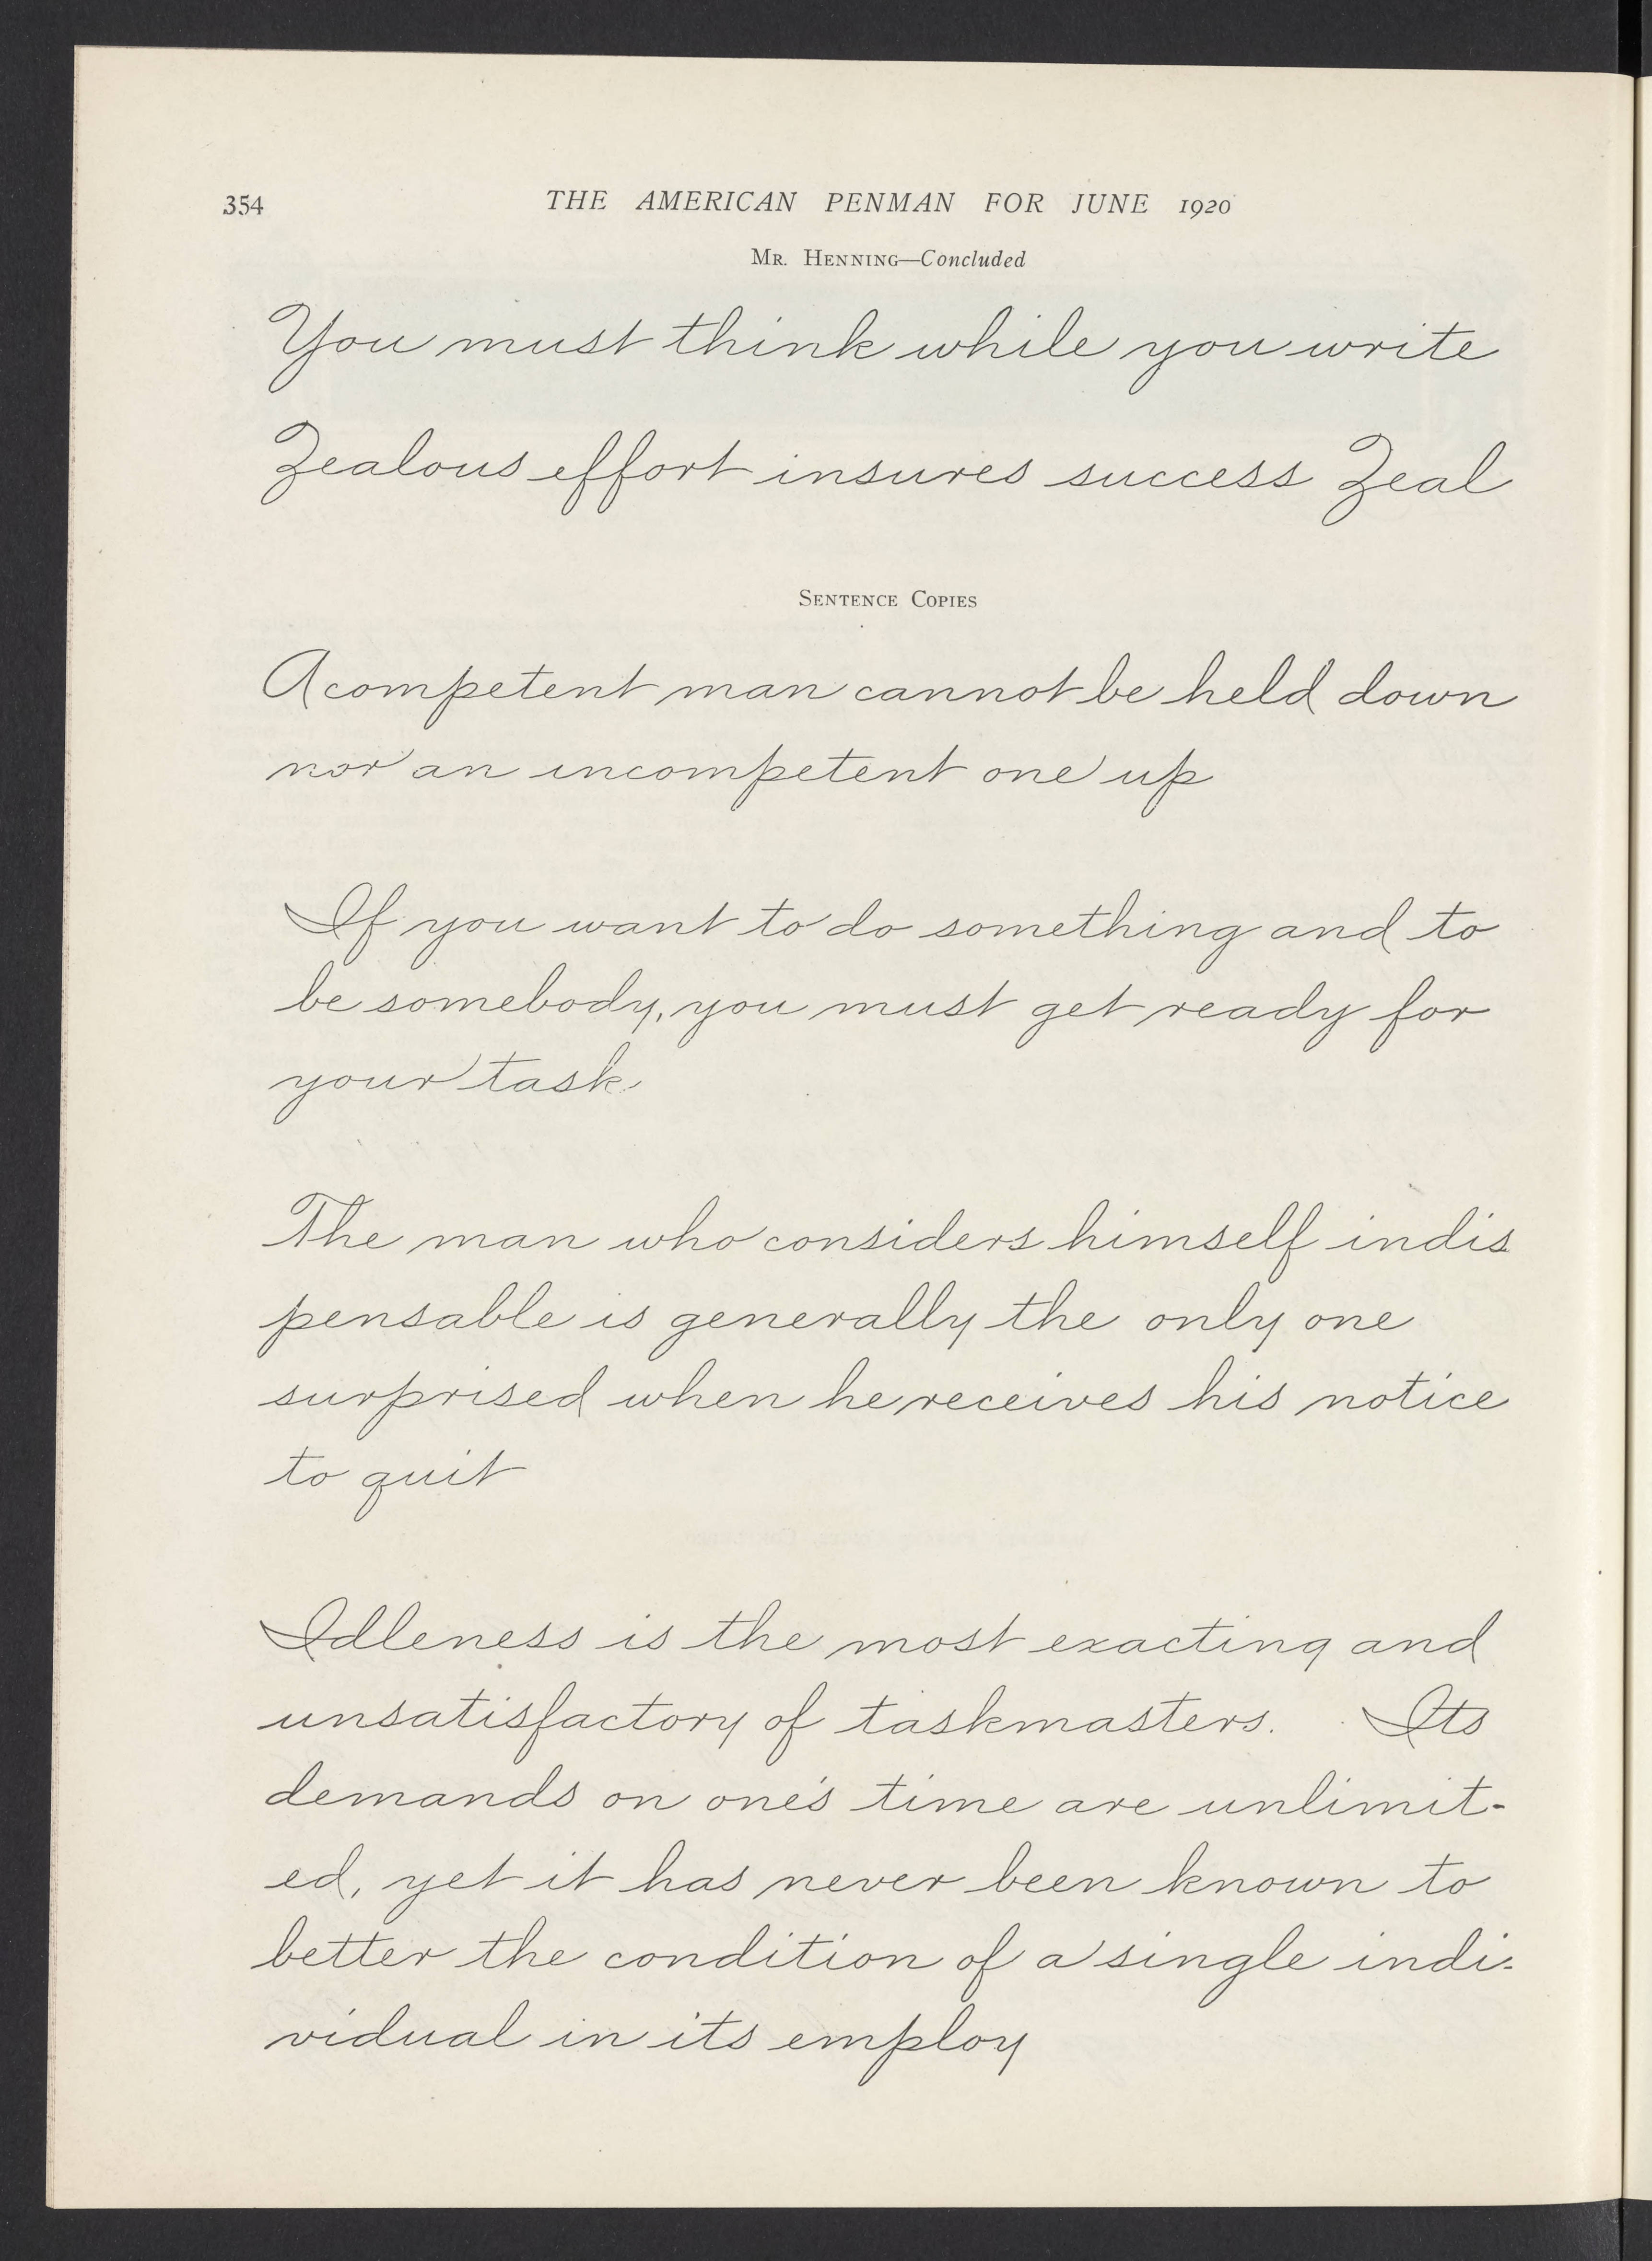 354 THE AMERICAN PENMAN FOR JUNE 1920
Mr. Henning—Concluded
You must think while you write
Zealous effort insures success Zeal
Sentence Copies
A competent man cannot be held down
nor an incompetent one up
If you want to do something and to
be somebody, you must get ready for
your task
The man who considers himself indis
pensable is generally the only one
surprised when he receives his notice
to quit
Idleness is the most exacting and
unsatisfactory of taskmasters. Its
demands on one's time are unlimit-
ed, yet it has never been known to
better the condition of a single indi-
vidual in its employ